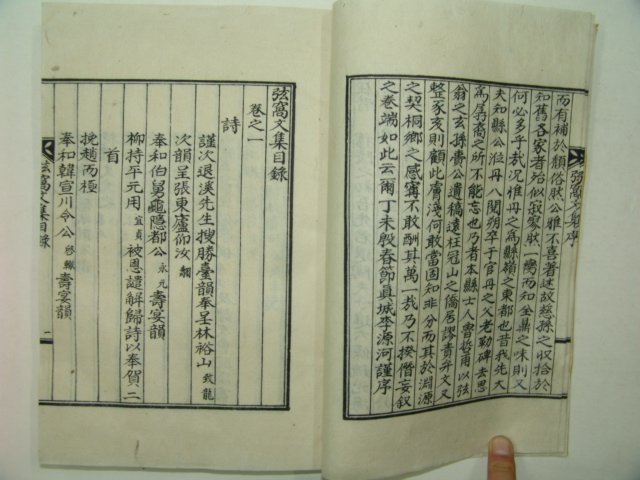 而有補於頹俗然公雅不喜著述故慈孫之收拾於
知舊各家者殆似寂寥然一臠而知全鼎之味則又
何必多乎哉況惟丹之爲縣嶺之東都也昔我先大
夫知縣公涖丹八閱朔卒于官丹之父老勒碑去思
爲孱裔之所不能忘也乃者本縣士人曺 甫以弦
翁之玄孫賫公遺稿遠枉冠山之僑居謬責弁文又
整豕亥則顧此膚淺何敢當固知非分而其於淵源
之契桐鄉之感寓不敢酬其萬一哉乃不揆僭妄叙
之卷端如此云爾丁未殷春節眞城李源河謹序
弦窩文集序
弦窩文集目錄
卷之一
詩
謹次退溪先生搜勝臺韻奉呈林裕山 我龍
次韻呈張東廬仰汝
奉和伯舅龜隱都公 永元 壽宴韻
柳持平元用 宜貞 被恩譴解歸詩以奉賀二
首
挽趙而極
奉和韓宣川令公 啓 壽宴韻
弦窩文集目錄